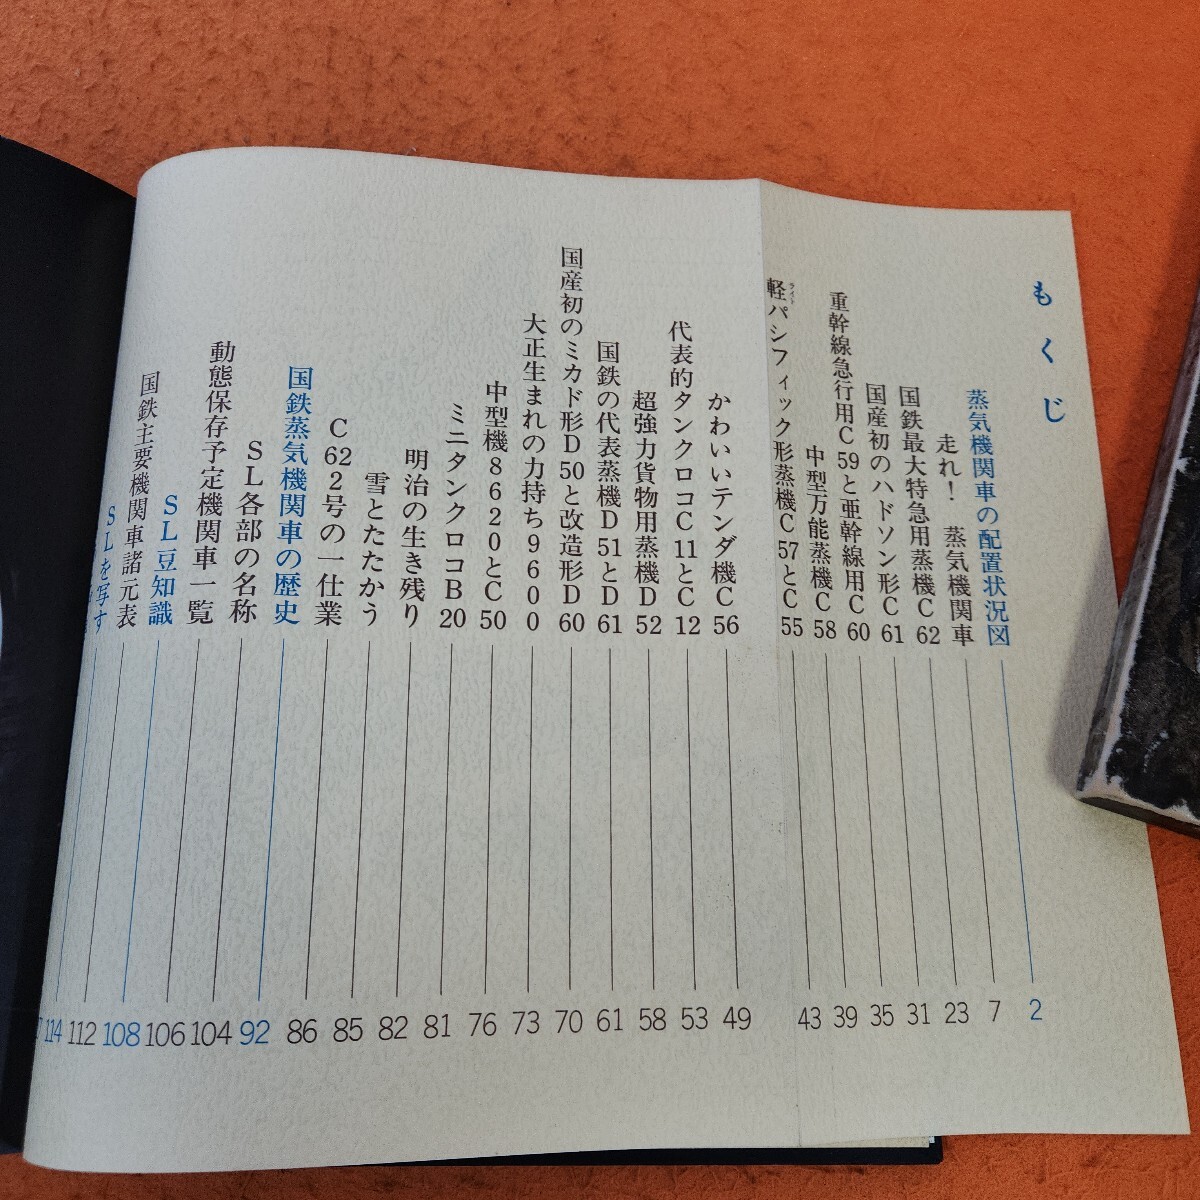 もくじ
蒸気機関車の配置状況図 2
走れ！　蒸気機関車 7
国鉄最大特急用蒸機C62 23
国産初のハドソン形C61 31
重幹線急行用C59と亜幹線用C60 35
中型万能蒸機C58 39
軽パシフィック形蒸機C57とC55 43
ライト
かわいいテンダ機C56 49
代表的タンクロコC11とC12 53
超強力貨物用蒸機D52 58
国鉄の代表蒸機D51とD61 61
国産初のミカド形D50と改造形D60 70
大正生まれの力持ち9600 73
中型機8620とC50 76
ミニタンクロコB20 81
明治の生き残り 82
雪とたたかう 85
C622号の一仕業 86
国鉄蒸気機関車の歴史 92
SL各部の名称 104
動態保存予定機関車一覧 106
SL豆知識 108
国鉄主要機関車諸元表 112
SLを写す 114